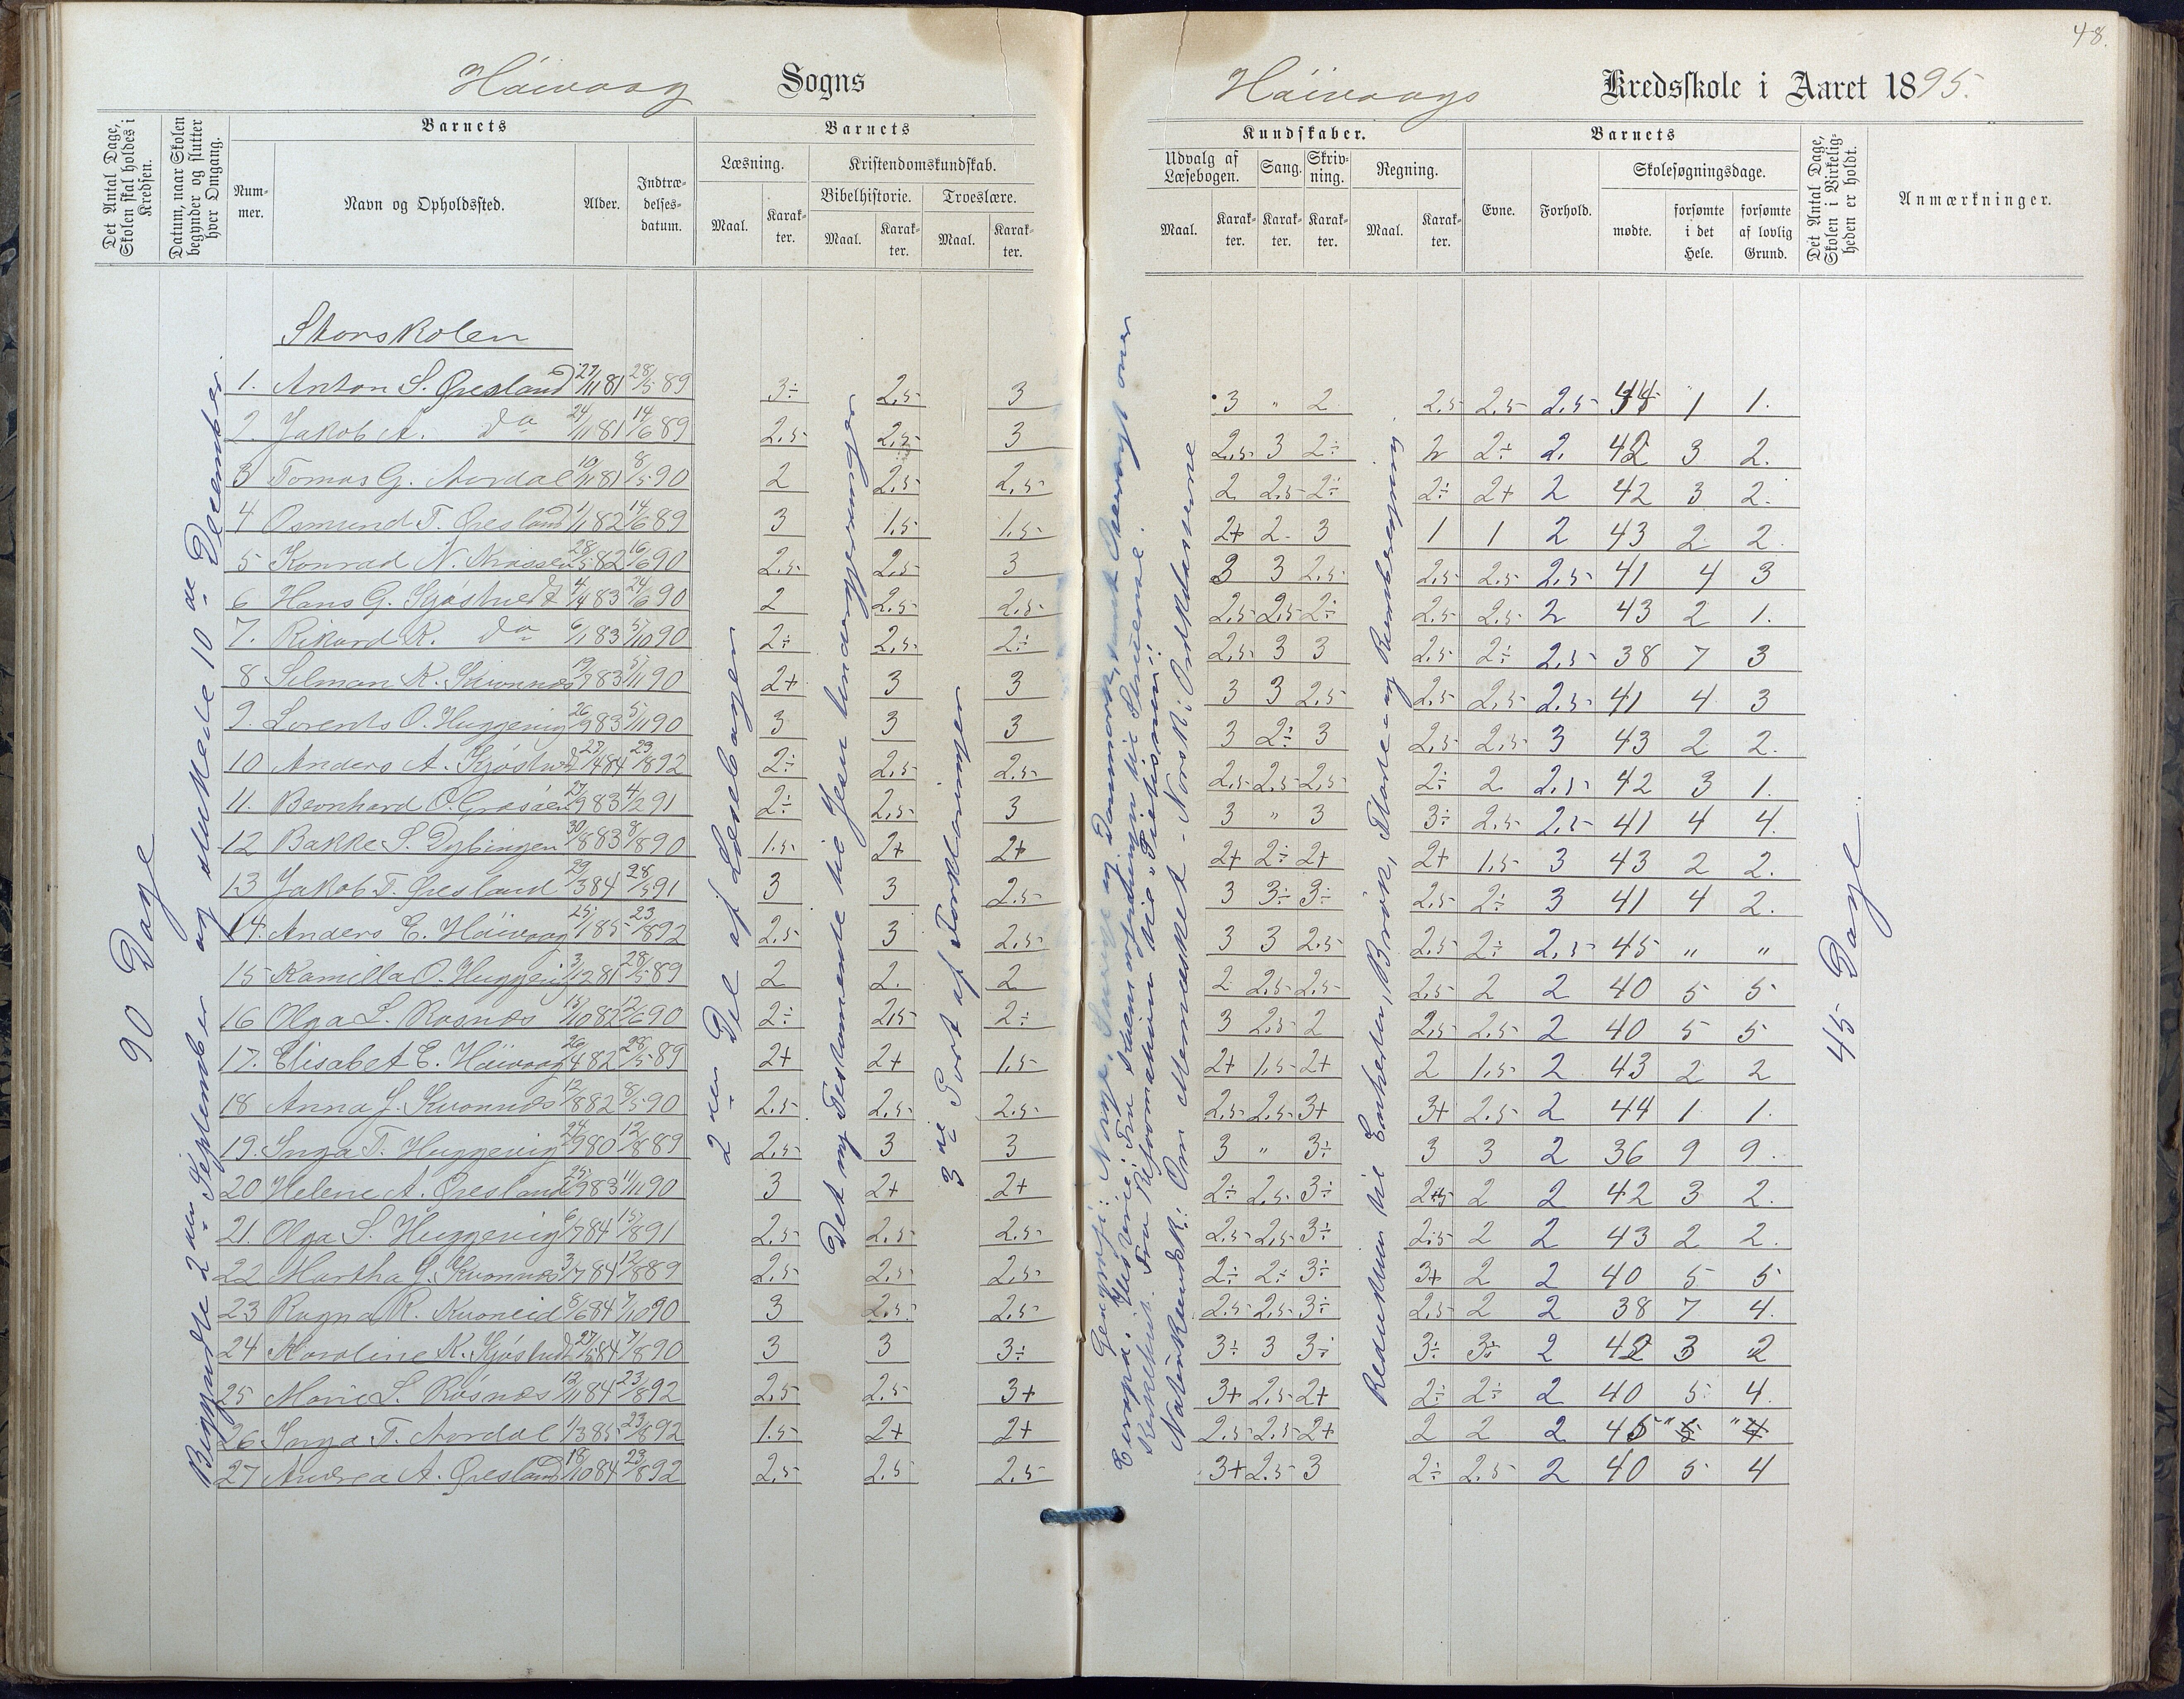 48.
Høivaag Sogns
Høivaags Kredsskole i Aaret 1895.
Det Antal Dage, Skolen skal holdes i Kredsen.
Datum, naar Skolen begynder og slutter hver Omgang.
Barnets
Num-mer.
Navn og Opholdssted.
Alder.
Indtræ-delses-datum.
Barnets
Læsning.
Kristendomskundskab.
Bibelhistorie.
Troeslære.
Maal. Karak-ter. Maal. Karak-ter. Maal. Karak-ter.
Kundskaber.
Udvalg af Læsebogen.
Sang.
Skriv-ning.
Regning.
Maal. Karak-ter. Karak-ter. Karak-ter. Maal. Karak-ter.
Barnets
Evne. Forhold.
Skolesøgningsdage.
mødte. forsømte i det Hele. forsømte af lovlig Grund.
Det Antal Dage, Skolen i Virkelig-heden er holdt.
Anmærkninger.
90 Dage
Begyndte 2den September og sluttede 10de December
Storskolen
2den Del af Læsebogen
Det ny Testamente til Jesu
3die Part af Forklaringen
Geografi: Norge, Sverige og Danmark, samt Oversigt over
Europa. Historie: Fra
Kirkehist. Fra Reformationen til "Pietismen".
Naturkundsk.: Om Mennesket - Norsk: Ordklasserne
Reduktion til Enheden, Brøk, Flade- og Rumberegning.
45 Dage
1. Anton S. Øresland 27/11 81 28/5 89 3÷ 2,5 3 3 " 2 2,5 2,5 2,5 44 1 1.
2. Jakob A. do 24/11 81 14/6 89 2,5 2,5 3 2,5 3 2÷ 2 2÷ 2. 42 3 2.
3 Tomas G. Aordal 10/11 81 8/5 90 2 2,5 2,5 2 2,5 2÷ 2÷ 2+ 2 42 3 2.
4 Osmund T. Øresland 1/1 82 14/6 89 3 1,5 1,5 2+ 2 3 1 1 2 43 2 2.
5 Konrad N. 28/5 82 16/6 90 2,5 2,5 3 3 3 2,5 2,5 2,5 2,5 41 4 3
6 Hans G. Kjøstvedt 4/4 83 24/6 90 2 2,5 2,5 2,5 2,5 2÷ 2,5 2,5 2 43 2 1.
7. Rikard K. do 6/1 83 5/10 90 2÷ 2,5 2÷ 2,5 3 3 2,5 2÷ 2,5 38 7 3
8 Selman K. 19/7 83 5/11 90 2+ 3 3 3 3 2,5 2,5 2,5 2,5 41 4 3
9. Lorents O. Huggenig 26/9 83 5/11 90 3 3 3 3 2÷ 3 2,5 2,5 3 43 2 2.
10 Anders A. Kjøstvedt 27/4 84 23/8 92 2÷ 2,5 2,5 2,5 2,5 2,5 2÷ 2 2,5 42 3 1.
11. Bernhard O. Grosåen 27/9 83 4/2 91 2÷ 2,5 3 3 " 3 3÷ 2,5 2,5 41 4 4.
12 Bakke S. Dybingen 30/8 83 8/8 90 1,5 2+ 2+ 2+ 2÷ 2+ 2+ 1,5 3 43 2 2.
13 Jakob T. Øresland 29/3 84 28/5 91 3 3 2,5 3 3÷ 3÷ 2,5 2÷ 3 41 4 2.
14. Anders E. Høivaag 25/1 85 23/8 92 2,5 3 2,5 3 3 2,5 2,5 2÷ 2,5 45 " "
15 Kamilla O. Huggenig 3/12 81 28/5 89 2 2. 2 2 2,5 2,5 2,5 2 2 40 5 5
16 Olga L. Rosnæs 15/10 82 12/6 90 2÷ 2,5 2÷ 3 2,5 2 2,5 2,5 2 40 5 5
17. Elisabet E. Høivaag 26/4 82 28/5 89 2+ 2+ 1,5 2+ 1,5 2+ 2 1,5 2 43 2 2
18 Anna J. Kvonnæs 12/8 82 8/5 90 2,5 2,5 2,5 2,5 2,5 3+ 3+ 2,5 2 44 1 1.
19. Inga T. Huggenig 24/9 80 12/8 89 2,5 3 3 3 " 3÷ 3 3 2 36 9 9.
20 Helene A. Øresland 25/9 83 11/11 90 3 2+ 2+ 2÷ 2,5 3÷ 2,5 2 2 42 3 2.
21. Olga S. Huggenig 6/7 84 15/8 91 2,5 2,5 2,5 2,5 2,5 3÷ 2,5 2 2 43 2 2.
22 Martha G. Kvonnæs 3/7 84 12/8 89 2,5 2,5 2,5 2÷ 2÷ 3÷ 3+ 2 2 40 5 5
23 Ragna R. Kvoneid 8/6 84 7/10 90 3 2,5 2,5 2,5 2,5 3÷ 2,5 2 2 38 7 4.
24 Karoline K. Kjøstvedt 27/5 84 7/8 90 3 3 3÷ 3÷ 3 3÷ 3÷ 3÷ 2 42 3 2
25 Marie L. Røsnæs 12/11 84 23/8 92 2,5 2,5 3+ 3+ 2,5 2+ 2÷ 2÷ 2 40 5 4.
26 Inga T. Aordal 1/3 85 23/8 92 1,5 2+ 2+ 2,5 2,5 2+ 2 2 2 45 " "
27 Andrea A. Øresland 18/10 84 23/8 92 2,5 2,5 2,5 3+ 2,5 3 2÷ 2,5 2 40 5 4